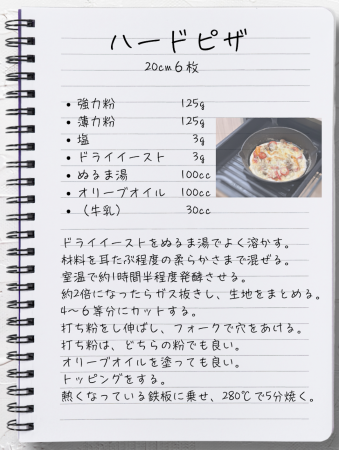 ハードピザ
20cm6枚
・強力粉 125g
・薄力粉 125g
・塩 3g
・ドライイースト 3g
・ぬるま湯 100cc
・オリーブオイル 100cc
・（牛乳） 30cc
ドライイーストをぬるま湯でよく溶かす。
材料を耳たぶ程度の柔らかさまで混ぜる。
室温で約1時間半程度発酵させる。
約2倍になったらガス抜きし、生地をまとめる。
4〜6等分にカットする。
打ち粉をし伸ばし、フォークで穴をあける。
打ち粉は、どちらの粉でも良い。
オリーブオイルを塗っても良い。
トッピングをする。
熱くなっている鉄板に乗せ、280℃で5分焼く。